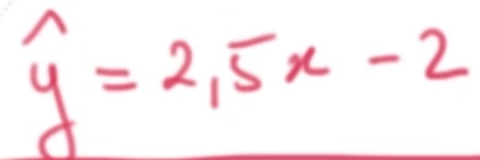 ŷ = 2,5x - 2